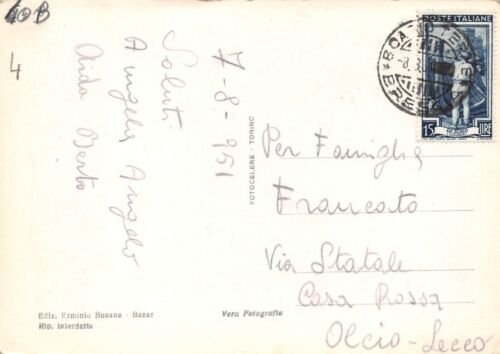 40B
4
7-8-951
Saluti
Angela Angelo
Aida Berto
FOTOCELERE - TORINO
Ediz. Erminio Busana - Bazar
Rip. interdetta
Vera Fotografia
POSTE ITALIANE
15 LIRE
BOARIO TERME
Per Famiglia
Francato
Via Statale
Casa Rossa
Olcio-Lecco